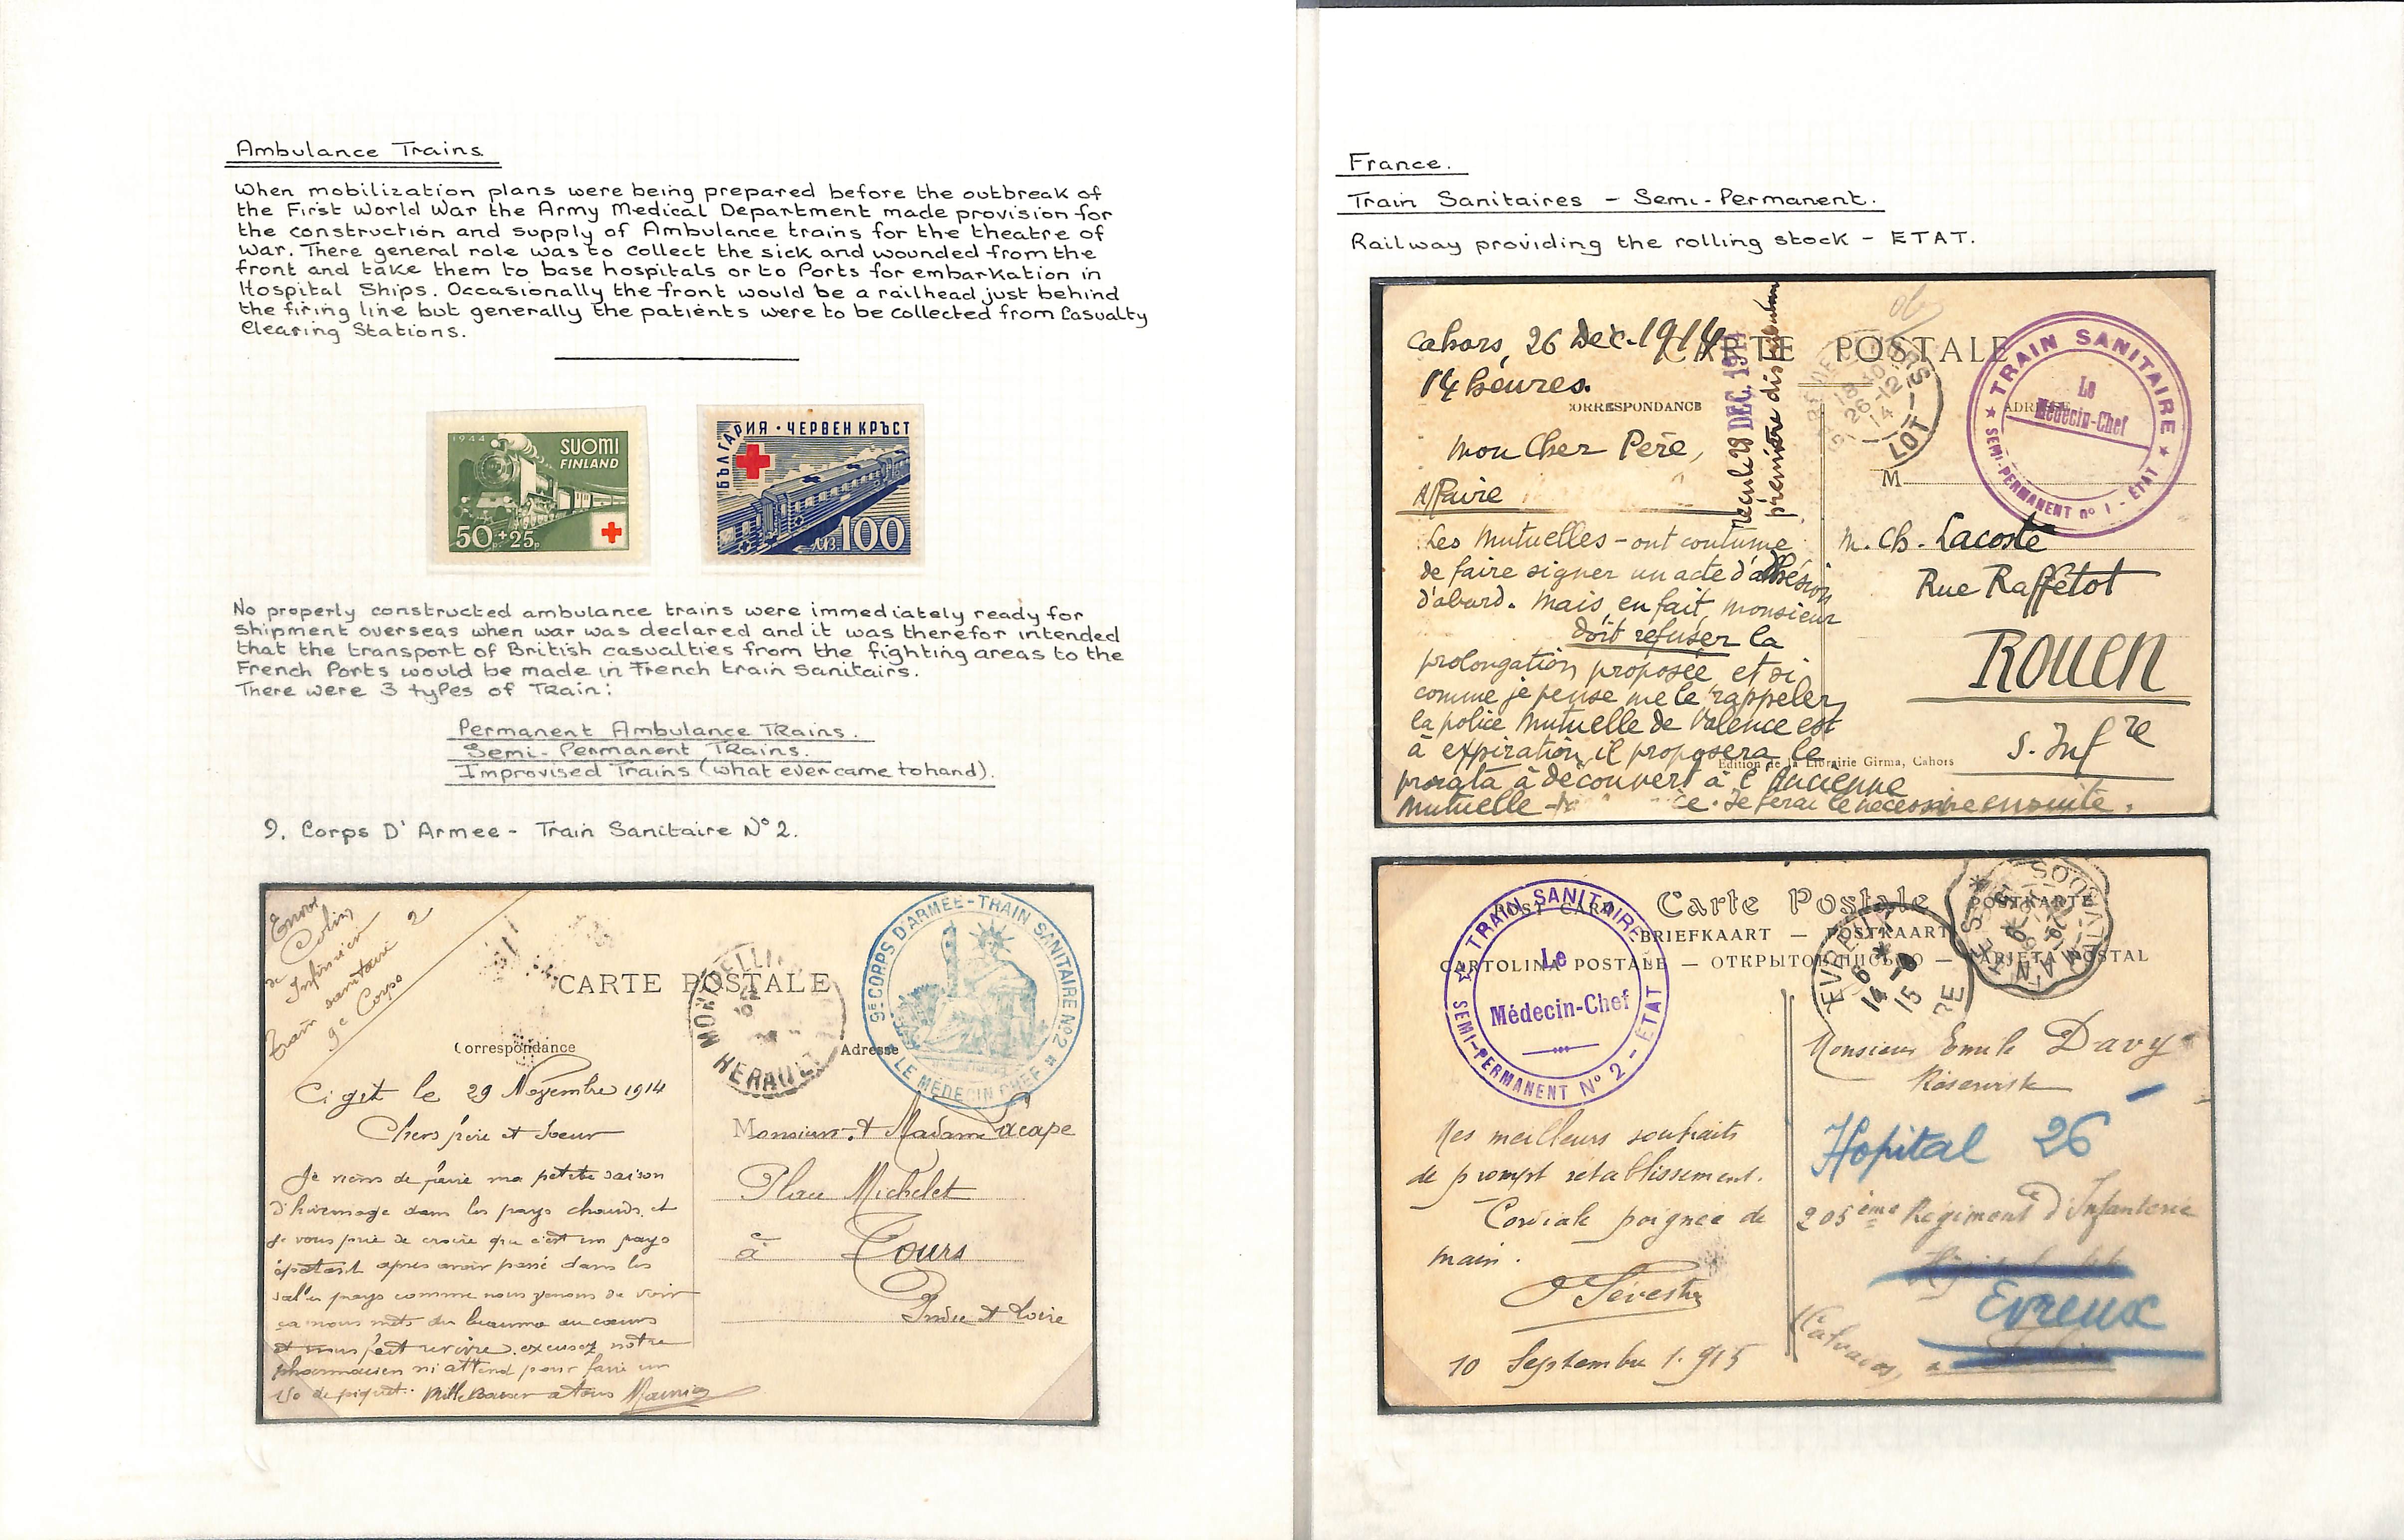 Ambulance Trains.
When mobilization plans were being prepared before the outbreak of
the First World War the Army Medical Department made provision for
the construction and supply of Ambulance trains for the theatre of
War. There general role was to collect the sick and wounded from the
front and take them to base hospitals or to Ports for embarkation in
Hospital Ships. Occasionally the front would be a railhead just behind
the firing line but generally the patients were to be collected from Casualty
Clearing Stations.
1944
SUOMI
FINLAND
50 P. +25 P.
БЪЛГАРИЯ · ЧЕРВЕН КРЪСТ
ЛВ. 100
No properly constructed ambulance trains were immediately ready for
shipment overseas when war was declared and it was therefor intended
that the transport of British casualties from the fighting areas to the
French Ports would be made in French train Sanitairs.
There were 3 types of Train:
Permanent Ambulance TRains.
Semi-Permanent TRains.
Improvised Trains (what ever came to hand).
9. Corps D'Armee - Train Sanitaire N° 2.
Envoi
de Colin
Infirmier
Train sanitaire 2
9e Corps
CARTE POSTALE
MONTPELLIER
HERAULT
9E CORPS D'ARMÉE - TRAIN SANITAIRE No 2
LE MÉDECIN CHEF
Correspondance
Adresse
Cigit le 29 Novembre 1914
Chers père et soeur
Je viens de faire ma petite saison
d'hivernage dans les pays chauds, et
je vous prie de croire que c'est un pays
épatant après avoir passé dans les
sales pays comme nous venons de voir
ça nous mets du beaume au coeurs
et nous fait revivre. excusez notre
pharmacien m'attend pour faire un
150 de piquet. Mille Baiser a tous
Monsieur et Madame Lacape
Place Michelet
à Tours
Indre et Loire
France.
Train Sanitaires - Semi-Permanent.
Railway providing the rolling stock - ETAT.
CARTE POSTALE
CORRESPONDANCE
ADRESSE
Cahors, 26 Déc. 1914
14 heures.
28 DEC. 1914
première distribution
18 30
26-12
14
LOT
TRAIN SANITAIRE
Le
Médecin-Chef
SEMI-PERMANENT no 1 - ÉTAT
Mon Cher Père,
Les Mutuelles - ont coutume
de faire signer un acte d'adhésion
d'abord. Mais, en fait, monsieur
doit refuser la
prolongation proposée et si
comme je pense me le rappeler
la police Mutuelle de Valence est
à expiration il proposera le
à découvert à l'Ancienne
Mutuelle
Je ferai le nécessaire ensuite.
M
M. Ch. Lacoste
Rue Raffetot
ROUEN
S. Infre
Edition de la Librairie Girma, Cahors
Carte Postale
POST CARD
POSTKARTE
BRIEFKAART — POSTKAART
CARTOLINA POSTALE — ОТКРЫТОЕ ПИСЬМО — TARJETA POSTAL
TRAIN SANITAIRE
Le
Médecin-Chef
SEMI-PERMANENT No 2 - ÉTAT
EVREUX
14-9
15
Mes meilleurs souhaits
de prompt retablissement.
Cordiale poignée de
main.
10 Septembre 1.915
Monsieur Emile Davy
Réserviste
Hopital 26
205ème Régiment d'Infanterie
Evreux
Calvados